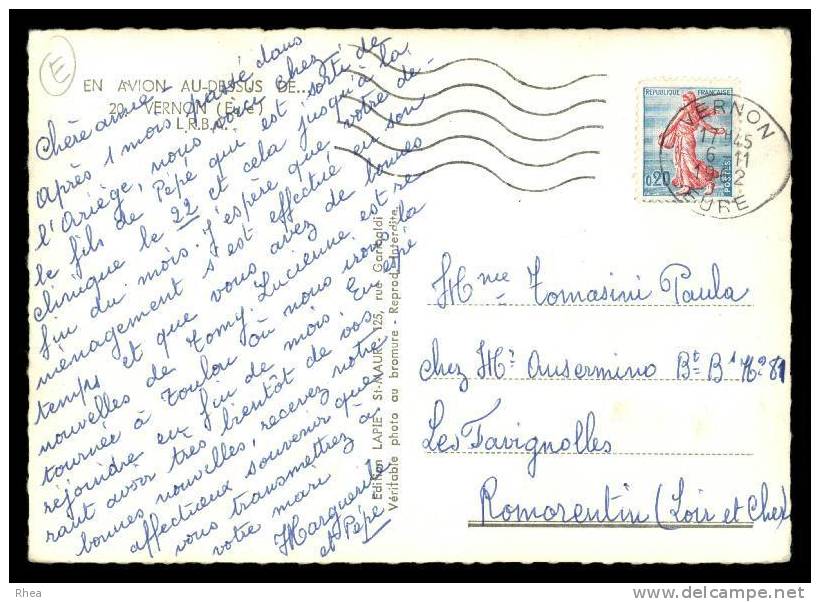 E
EN AVION AU-DESSUS DE...
20. VERNON (Eure)
L.R.B.A.
Chère amie,
Après 1 mois passé dans
l'Ariège, nous voici chez
le fils de Pépé qui est sorti de
clinique le 22 et cela jusqu'à la
fin du mois. J'espère que votre dé-
ménagement s'est effectué en son
temps et que vous avez de bonnes
nouvelles de Tomy. Lucienne est re-
tournée à Toulon où nous irons la
rejoindre en fin de mois. En espé
rant avoir très bientôt de vos
bonnes nouvelles, recevez notre
affectueux souvenir que
vous transmettrez à
votre mari
Marguerite
et Pépé
Edition LAPIE, St-MAUR, 125, rue Garibaldi
Véritable photo au bromure - Reprod. Interdite
REPUBLIQUE FRANÇAISE
0,20
POSTES
VERNON
17H45
6-11
EURE
Mme Tomasini Paula
chez Mr Ansermino Bt B1 No 81
Les Favignolles
Romorentin (Loir et Cher)
Rhea
delcampe.net